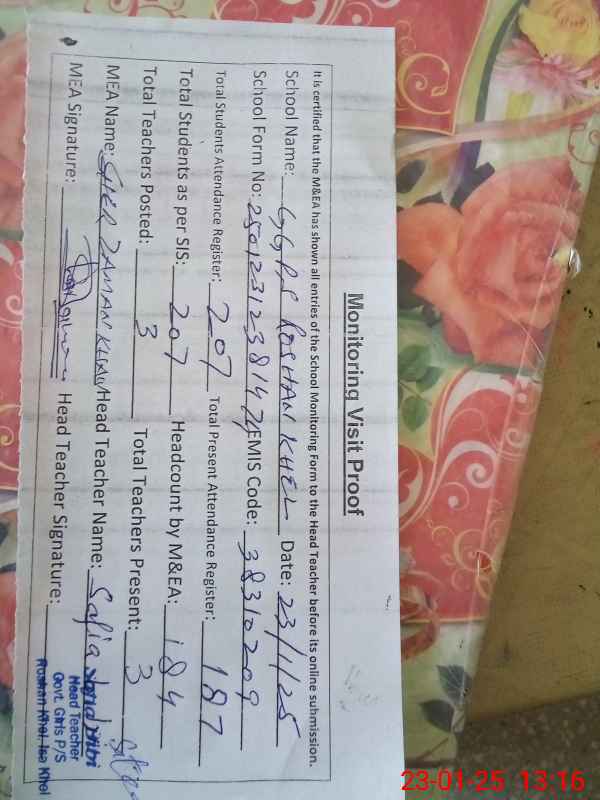 Monitoring Visit Proof
It is certified that the M&EA has shown all entries of the School Monitoring Form to the Head Teacher before its online submission.
School Name: GGPS ROSHAN KHEL Date: 23/1/25
School Form No: EMIS Code: 38310209
Total Students Attendance Register: 207 Total Present Attendance Register: 187
Total Students as per SIS: 207 Headcount by M&EA: 184
Total Teachers Posted: 3 Total Teachers Present: 3
MEA Name: SHER ZAMAN KHAN Head Teacher Name: Safia
MEA Signature: Head Teacher Signature:
Head Teacher
Govt. Girls P/S
Roshan Khel Isa Khel
23-01-25 13:16